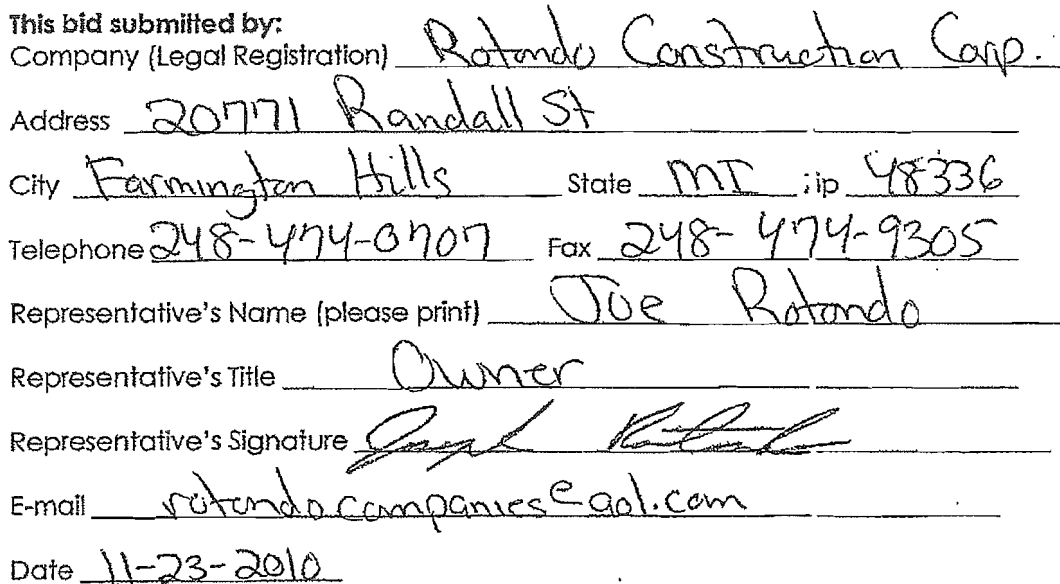 This bid submitted by:
Company (Legal Registration) Rotondo Construction Corp.
Address 20771 Randall St
City Farmington Hills State MI ;ip 48336
Telephone 248-474-0707 Fax 248-474-9305
Representative's Name (please print) Joe Rotondo
Representative's Title Owner
Representative's Signature Joseph Rotondo
E-mail rotondocompanies@aol.com
Date 11-23-2010